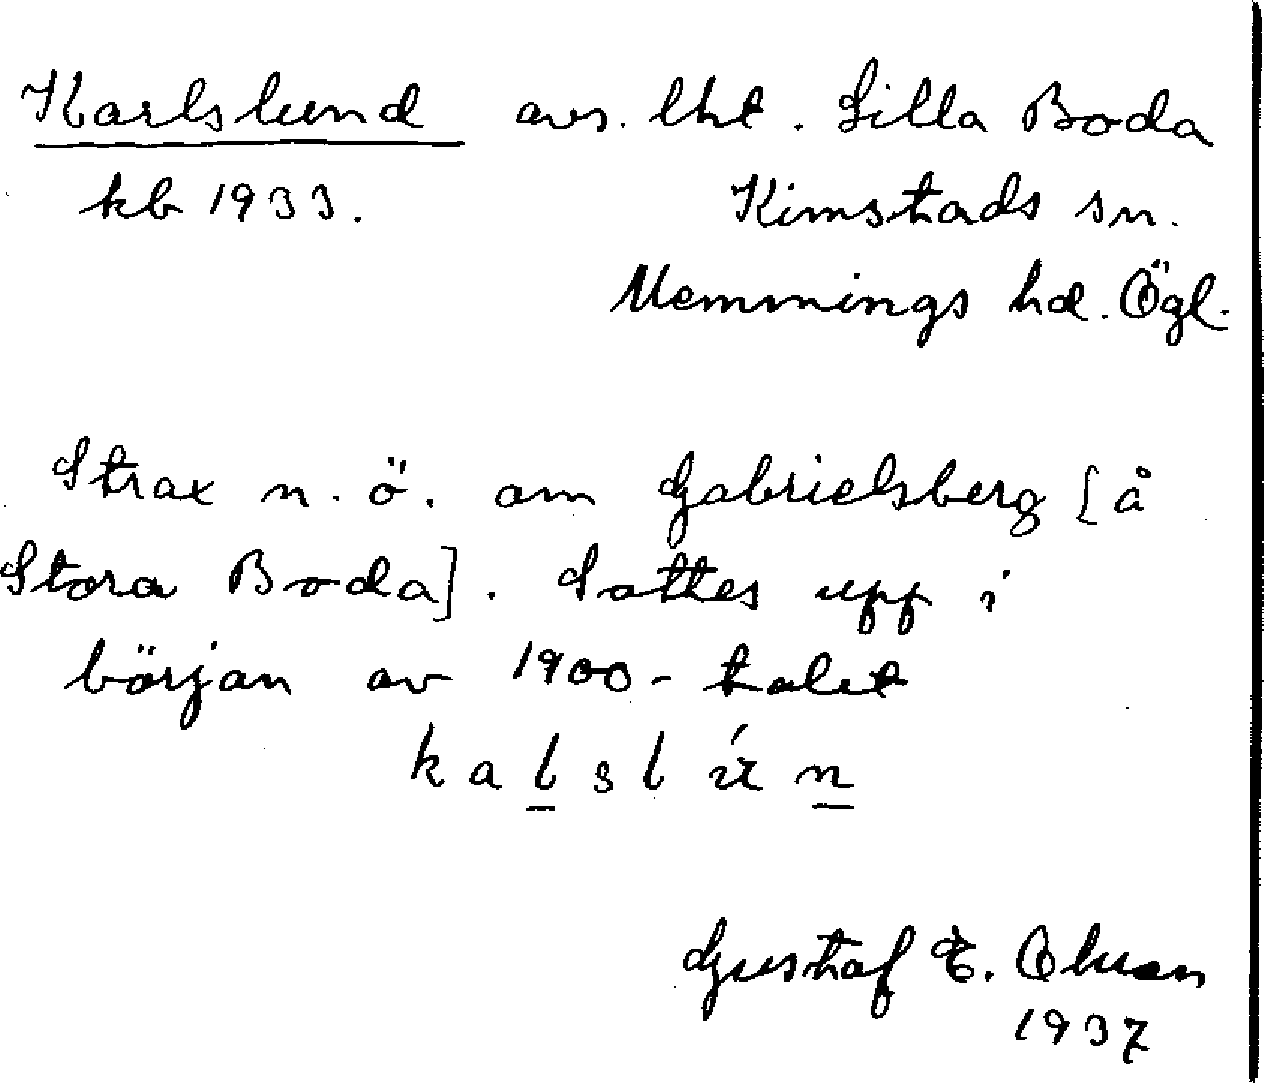 Karlslund avs. lht. Lilla Boda
kb 1933. Kimstads sn.
Memmings hd. Ögl.
Strax n. ö. om Gabrielsberg [å
Stora Boda]. Sattes upp i
början av 1900-talet
kalslún
Gustaf E. Olsson
1937